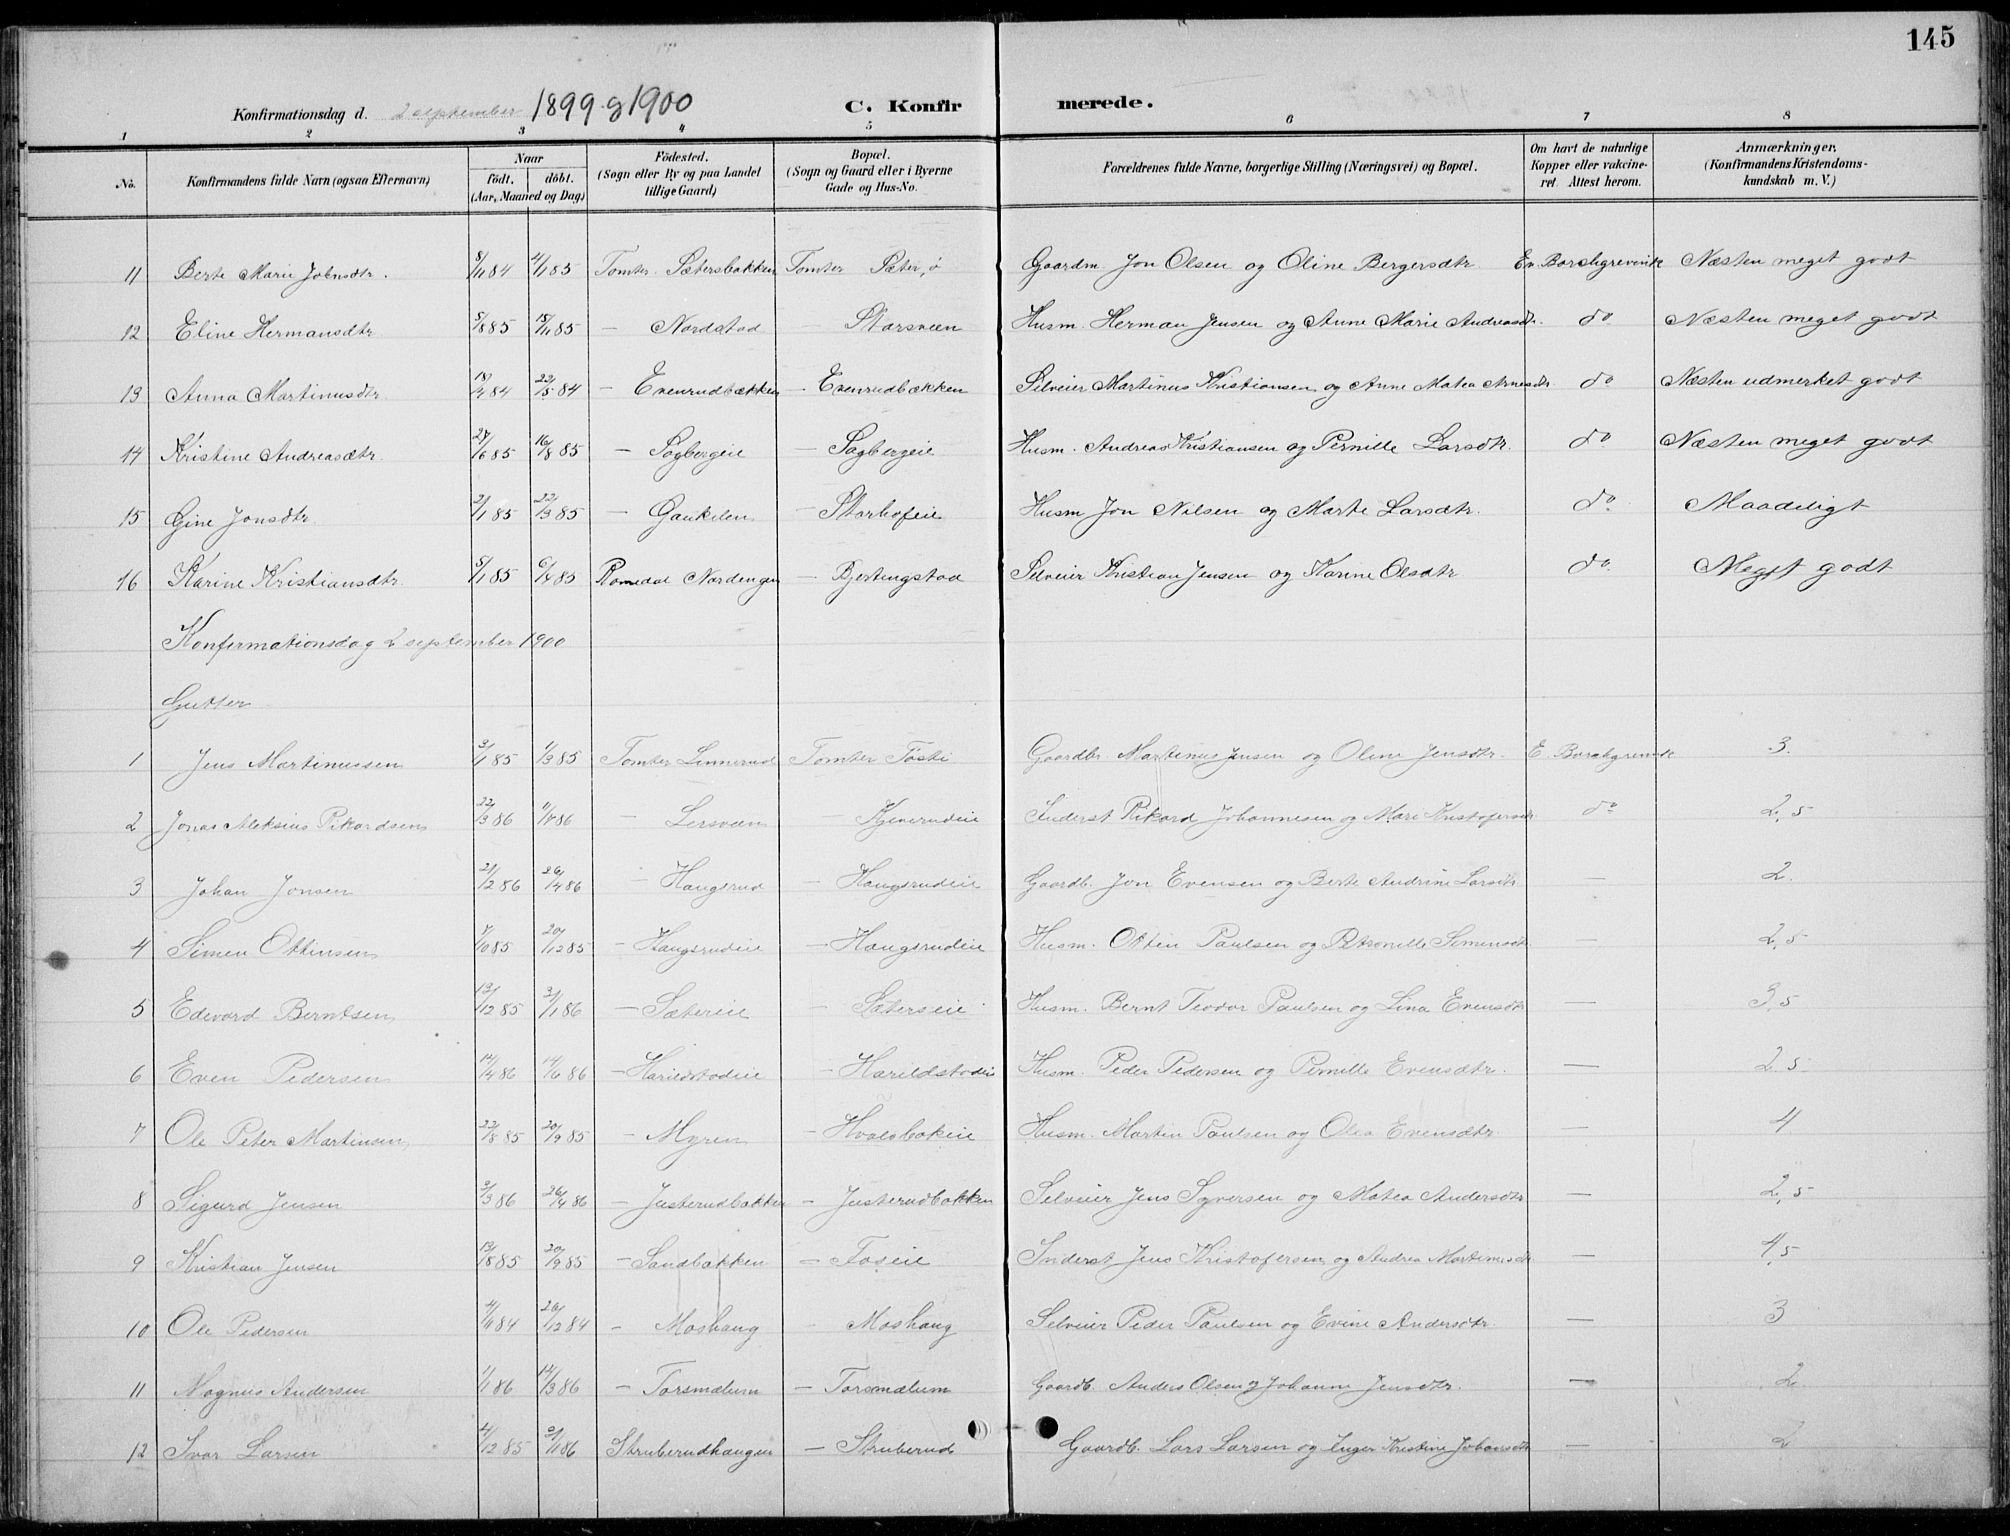 145
Konfirmationsdag d. 2 september 1899 og 1900 C. Konfirmerede.
1 2 3 4 5 6 7 8
No. Konfirmandens fulde Navn (ogsaa Efternavn) Naar født, døbt. (Aar, Maaned og Dag) Fødested. (Sogn eller By og paa Landet tillige Gaard) Bopæl. (Sogn og Gaard eller i Byerne Gade og Hus-No. Forældrenes fulde Navne, borgerlige Stilling (Næringsvei) og Bopæl. Om havt de naturlige Kopper eller vakcineret. Attest herom. Anmærkninger. (Konfirmandens Kristendomskundskab m. V.)
11 Berte Marie Johnsdtr. 8/11 84 4/1 85 Tomter Sætersbakken Tomter Sæter, ø Gaardm Jon Olsen og Oline Bergersdtr Ev. Borchgrevink Næsten meget godt
12 Eline Hermansdtr 5/8 85 15/11 85 — Nordstad — Starsveen Husm. Herman Jensen og Anne Marie Andreasdtr. do Næsten meget godt
13 Anna Martinusdtr 84 22/5 84 — Evenrudbækken — Evenrudbækken Selveier Martinus Kristiansen og Anne Matea Arnesdtr do Næsten udmerket godt
14 Kristine Andreasdtr. 27/6 85 16/8 85 — Sagbergeie — Sagbergeie Husm. Andreas Kristiansen og Pernille Larsdtr. do Næsten meget godt
15 Gine Jonsdtr 2/1 85 22/3 85 — Gaukilen — Storhofeie Husm Jon Nilsen og Marte Larsdtr. do. Maadeligt
16 Karine Kristiansdtr. 5/1 85 6/4 85 Romedal Nordengen — Bjertingstad Selveier Kristian Jensen og Karine Olsdtr do. Meget godt
Konfirmationsdag 2 september 1900
Gutter
1 Jens Martinussen 3/1 85 1/3 85 Tomter Linnerud Tomter Tøsti Gaardbr. Martinus Jensen og Oline Jensdtr. E. Borchgrevink 3.
2 Jonas Aleksius Rikardsen 22/3 86 86 — Lersveen — Kjiverudeie Inderst Rikard Johannesen og Mari Kristofersdtr. do 2,5
3 Johan Jonsen 21/2 86 26/4 86 — Haugsrud — Haugsrudeie Gaardb. Jon Evensen og Berte Andrine Larsdtr — 2.
4 Simen Ottinsen 7/10 85 20/12 85 — Haugsrudeie — Haugsrudeie Husm. Ottin Paulsen og Petronille Simensdtr — 2,5
5 Edevard Berntsen 13/12 85 31/1 86 — Sætereie — Sæterseie Husm. Bernt Teodor Paulsen og Lina Evensdtr — 3,5
6 Even Pedersen 14/4 86 14/6 86 — Harildstadeie — Harildstadeie Husm. Peder Pedersen og Pernille Evensdtr. — 2 5
7 Ole Peter Martinsen 22/8 85 20/9 85 — Myren — Hvalsbakeie Husm. Martin Paulsen og Olea Evensdtr. — 4
8 Sigurd Jensen 3/3 86 26/4 86 — Justerudbakken — Justerudbakken Selveier Jens Syversen og Matea Andersdtr — 2,5
9 Kristian Jensen 13/8 85 20/9 85 — Sandbakken — Foseie Inderst Jens Kristofersen og Andrea Martinusdtr — 4,5
10 Ole Pedersen 4/11 84 26/12 84 — Moshaug — Moshaug Selveier Peder Paulsen og Evine Andersdtr. — 3
11 Magnus Andersen 1/1 86 14/3 86 — Torsmælum — Torsmælum Gaardb. Anders Olsen og Johanne Jensdtr. — 2
12 Ivar Larsen 4/12 85 86 Struberudhaugen — Struberud Gaardb. Lars Larsen og Inger Kristine Johansdtr — 2